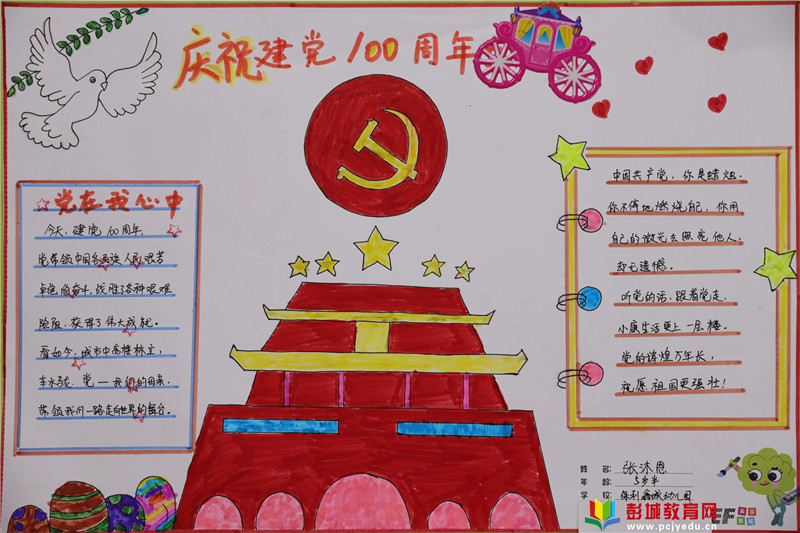 庆祝建党100周年
党在我心中
今天，建党100周年，
党带领中国各民族人民艰苦
卓绝的奋斗，战胜了各种艰难
险阻，获得了伟大成就。
看如今，城市中高楼林立，
车水马龙，党一我们的母亲，
带领我们一路走向世界的舞台。
中国共产党，你是蜡烛。
你不停地燃烧自己，你用
自己的微光去照亮他人，
却无遗憾。
听党的话，跟着党走，
小康生活更上一层楼。
党的辉煌万年长，
祝愿祖国更强壮！
姓名：张沐恩
年龄：5岁半
学校：保利鑫城幼儿园
彭城教育网
www.pcjyedu.cn
EF